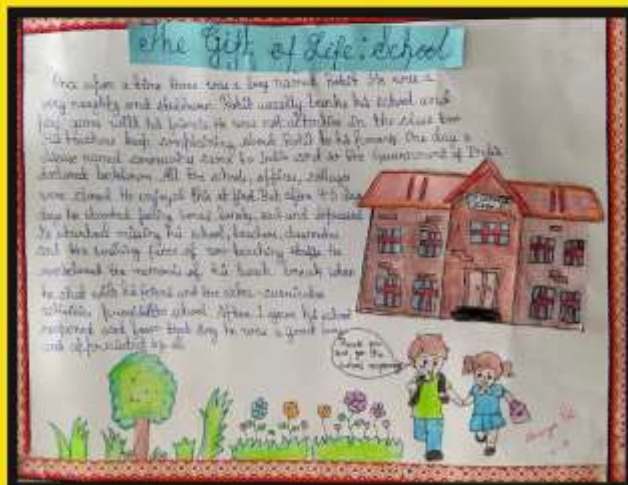 The Gift of Life: School
Once upon a time there was a boy named Rohit. He was a
very naughty and stubborn. Rohit usually bunks his school and
play games with his friends. He was not attentive in the class too.
His teachers keep complaining about Rohit to his parents. One day a
disease named coronavirus came to India and so the Government of India
declared lockdown. All the school, offices, colleges
were closed. He enjoyed this at first. But after 4-5 day
he started feeling bored, lonely, sad and depressed
He started missing his school, teachers, classmates
and the smiling faces of non-teaching staffs. He
the memories of his lunch break when
he chat with his friend and the extra-curricular
activities school. After 1 year his school
reopened and from that day he was a good boy
and appreciated by all
Thank you
god, for the
school reopening